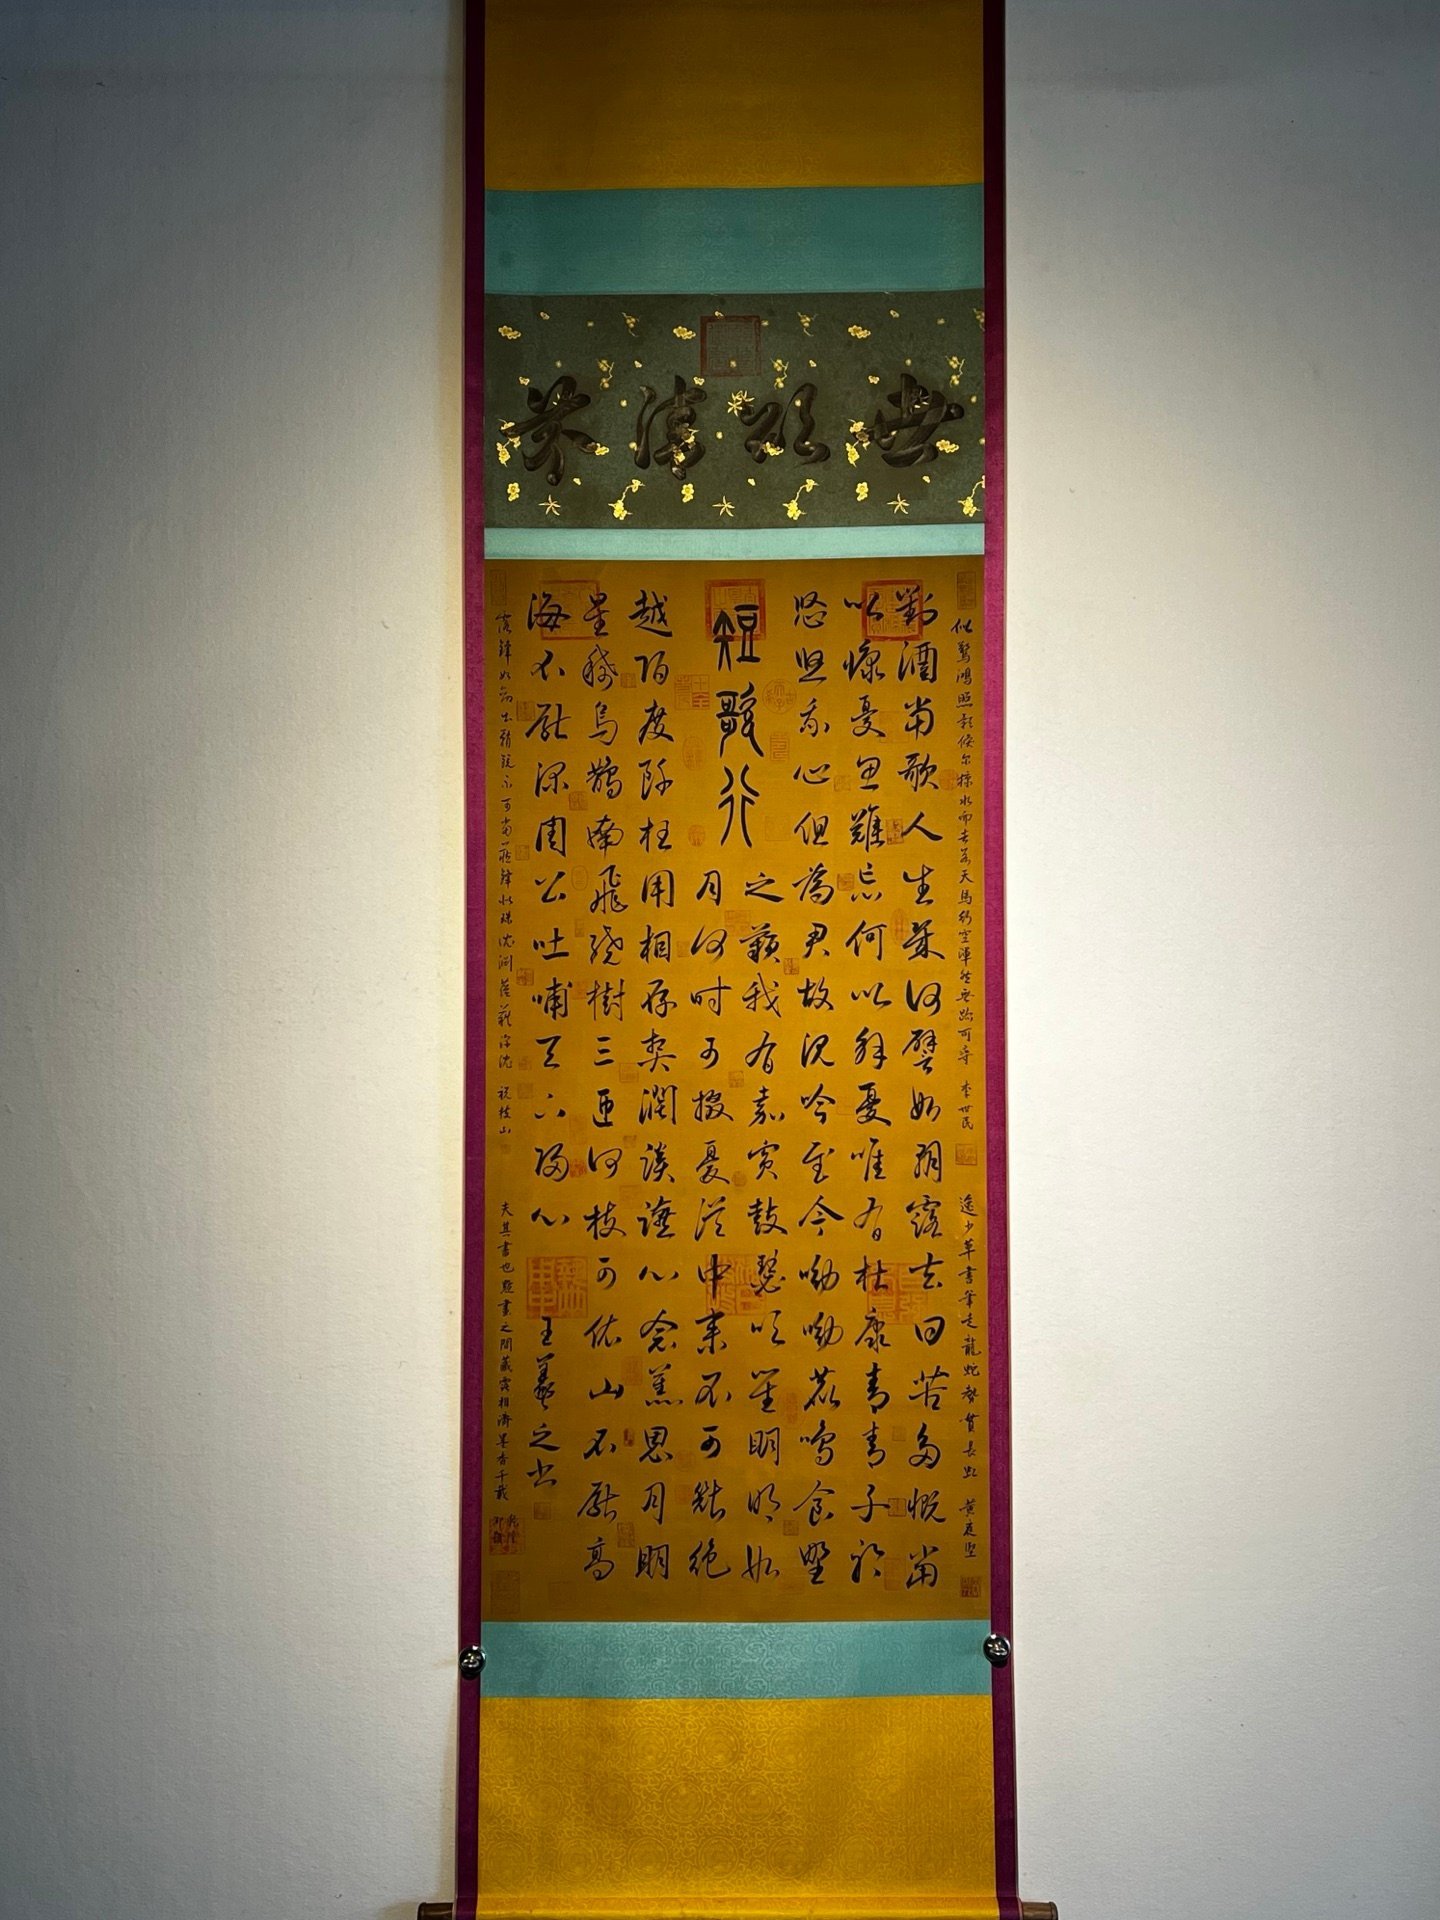 世頌清芬
似驚鴻照影倏尔掠水而去若天馬行空渾然無跡可尋 李世民
逸少草書筆走龍蛇勢貫長虹 黃庭堅
對酒當歌人生幾何譬如朝露去日苦多慨當
以慷憂思難忘何以解憂唯有杜康青青子衿
悠悠我心但為君故沈吟至今呦呦鹿鳴食野
短歌行
之蘋我有嘉賓鼓瑟吹笙明明如
月何時可掇憂從中來不可斷絕
越陌度阡枉用相存契闊談讌心念舊恩月明
星稀烏鵲南飛繞樹三匝何枝可依山不厭高
海不厭深周公吐哺天下歸心 王羲之書
露鋒如劍出鞘銳不可當藏鋒似珠沈淵蘊藉深沈 祝枝山
夫其書也點畫之間藏露相濟墨香千載
乾隆